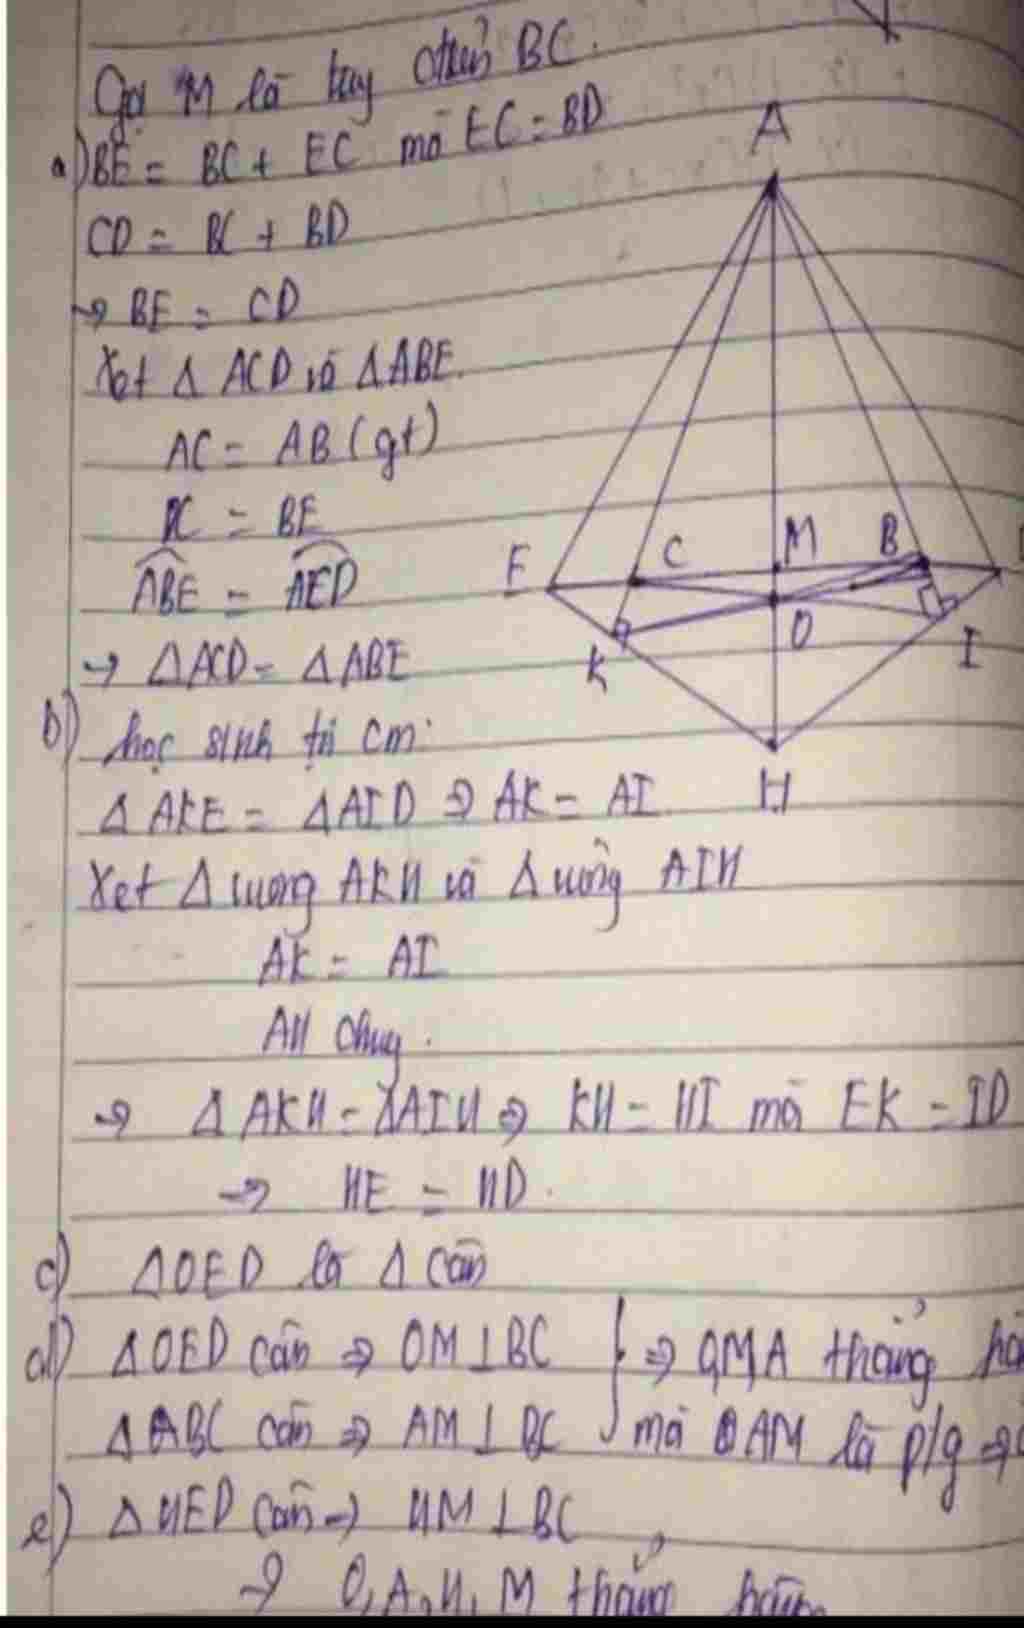 Gọi M là trung điểm BC.
a) BE = BC + EC mà EC = BD
CD = BC + BD
→ BE = CD
Xét Δ ACD và ΔABE.
AC = AB (gt)
DC = BE
ABE = AED
→ ΔACD = ΔABE
b) học sinh tự cm
Δ AKE = ΔAID ⇒ AK = AI
Xét Δ vuông AKH và Δ vuông AIH
AK = AI
AH chung.
→ Δ AKH = ΔAIH ⇒ KH = HI mà EK = ID
→ HE = HD.
c) ΔOED là Δ cân
d) ΔOED cân ⇒ OM⊥BC } ⇒ OMA thẳng
ΔABC cân ⇒ AM⊥BC mà AM là p/g ⇒
e) ΔHED cân → HM⊥BC
→ O, A, H, M thẳng hàng
A
E C M B
K O I
H